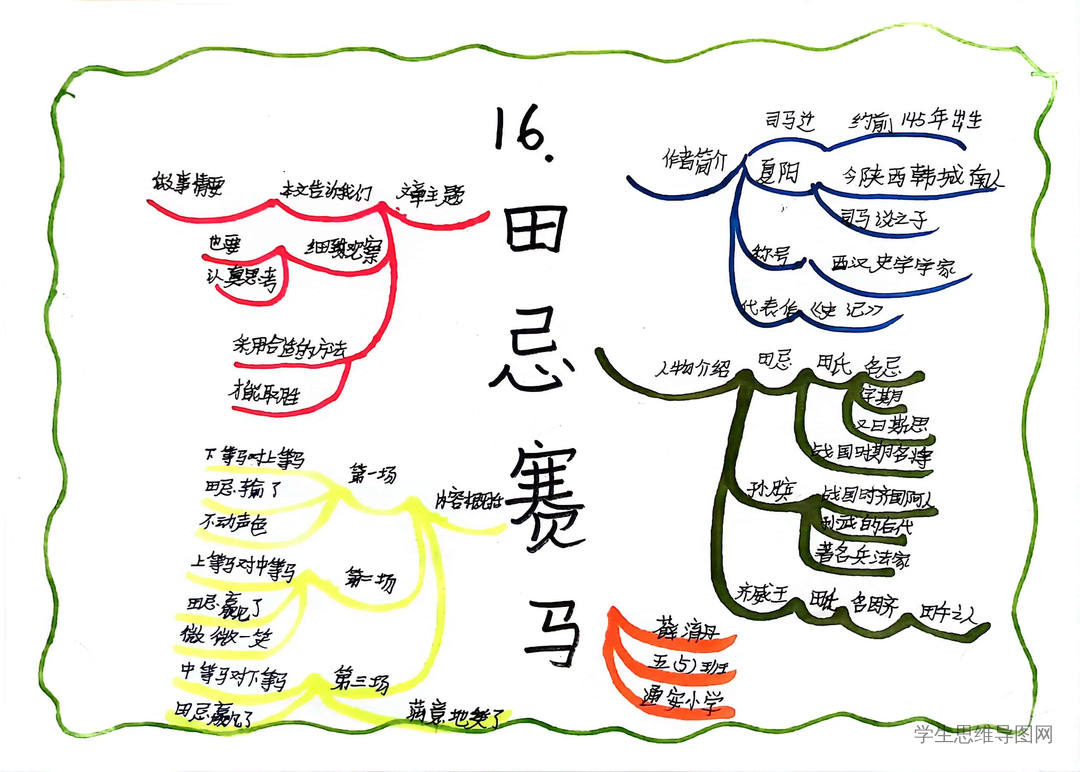 16.
田忌赛马
作者简介
司马迁
约前145年出生
夏阳
今陕西韩城南人
司马谈之子
称号
西汉史学学家
代表作
《史记》
人物介绍
田忌
田氏
名忌
字期
又曰期思
战国时期名将
孙膑
战国时齐国阿人
孙武的后代
著名兵法家
齐威王
田氏
名田齐
田午之人
文章主题
本文告诉我们
做事情要
细致观察
也要
认真思考
采用合适的方法
才能取胜
内容概括
第一场
下等马对上等马
田忌输了
不动声色
第二场
上等马对中等马
田忌赢了
微微一笑
第三场
中等马对下等马
田忌赢了
满意地笑了
五(5)班
通安小学
学生思维导图网